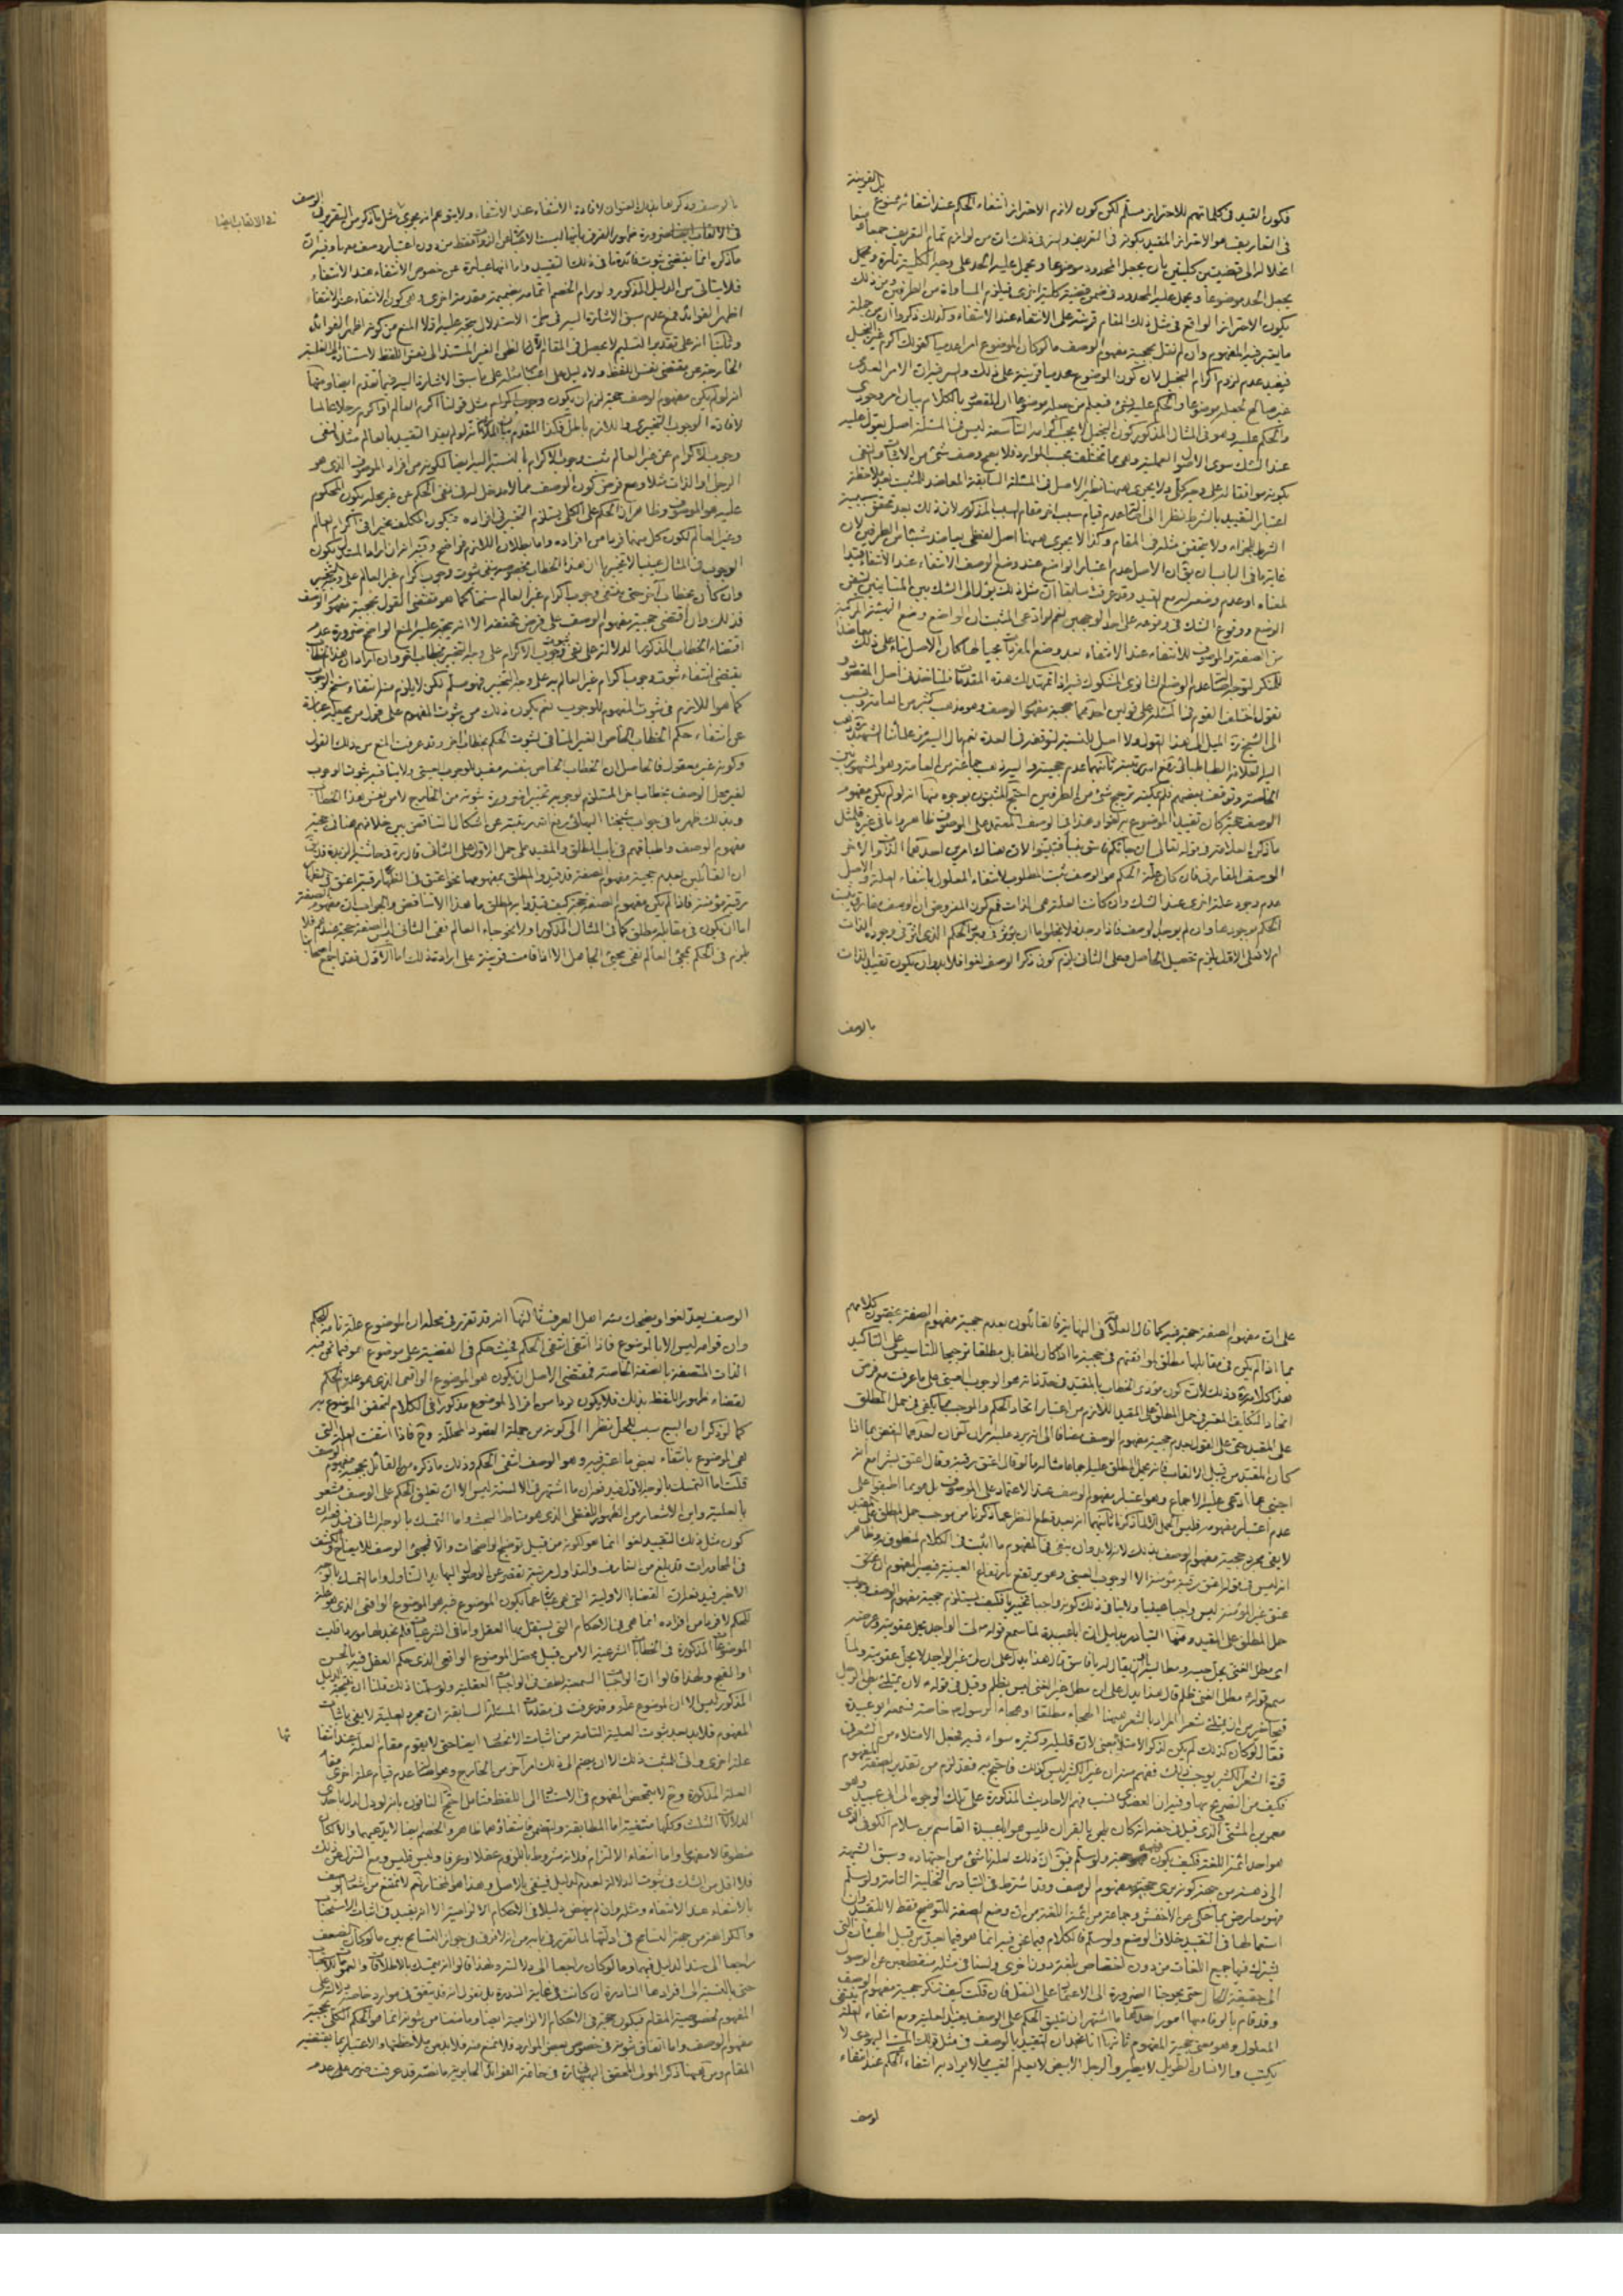 بل القرينة
فكون القيد فى كلماتهم للاحتراز مسلم لكن كون لازم الاحتراز انتفاء الحكم عند انتفائه ممنوع
فى التعاريف هو الاحتراز المقيد بكونه فى التعريف والسر فى ذلك ان من لوازم تمام التعريف جمعا ومنعا
انحلاله الى قضيتين كليتين بان يجعل المحدود موضوعا ويحمل عليه الحد على وجه الكلية تارة و
يجعل الحد موضوعا ويحمل عليه المحدود فى ضمن قضية كلية اخرى فيلزم المساواة من الطرفين ومن ذلك
يكون الاحتراز الواقع فى مثل ذلك المقام قرينة على الانتفاء عند الانتفاء وكذلك ذكروا ان من جملة
ما يعتبر فيه المفهوم وان لم نقل بحجية مفهوم الوصف ما لو كان الموضوع امرا عدميا كقولك اكرم غير البخيل
فيفيد عدم لزوم اكرام البخيل لان كون الموضوع عدميا قرينة على ذلك والسر فيه ان الامر العدمى
غير صالح لجعله موضوعا والحكم عليه بشئ فيعلم من جعله موضوعا ان المقصود بالكلام بيان امر وجودى
والحكم عليه وهو فى المثال المذكور كون البخيل لا يجب اكرامه التاسعة ليس فى المسئلة اصل يعول عليه
عند الشك سوى الاصول العملية وهى مما تختلف بحسب الموارد فلا يصح وصف شئ من الاثبات والنفى
بكونه موافقا له على وجه كلى ولا يجرى هيهنا نظير الاصل فى المسئلة السابقة المعاضد للمثبت بعد ملاحظة
اعتبار التقييد بالشرط نظرا الى اصالة عدم قيام سبب اخر مقام السبب المذكور لان ذلك بعد تحقق سببية
الشرط للجزاء ولا يتحقق مثله فى المقام وكذا لا يجرى هيهنا اصل لفظى يعاضد شيئا من الطرفين لان
غاية ما فى الباب ان يقال ان الاصل عدم اعتبار الواضع عند وضع الوصف الانتفاء عند الانتفاء قيدا
لمعناه او عدم وضعه له مع القيد وقد عرفت سابقا ان مثل ذلك يؤل الى الشك بين المتباينين
الوضع ووقوع الشك فى وقوعه على احد الوجهين نعم لو ادعى المثبت ان الواضع وضع الهيئة المركبة
من الصفة والموصوف للانتفاء عند الانتفاء بعد وضع المفردات كان الاصل بناء على ذلك معاضدا
للمنكر لتوجه اصالة عدم الوضع الثانوى المشكوك فيه اذا تمهد لك هذه المقدمات فلناخذ فى اصل المقصود
نقول اختلف القوم فى المسئلة على قولين احدهما حجية مفهوم الوصف وهو مذهب كثير من العامة ونسب
الى الشيخ ره الميل الى هذا القول ولا اصل بالنسبة
اليه العلامة الطباطبائى ثانيهما عدم حجيته واليه ذهب جماعة من العامة وهو المشهور بين
الخاصة وتوقف بعضهم فلم يمكنه ترجيح شئ من الطرفين احتج المثبتون بوجوه منها انه لو لم يكن مفهوم
الوصف حجة كان تقييد الموضوع به لغوا وهذا فى الوصف المعتمد على الموصوف ظاهر واما فى غيره فلمثل
ما ذكره العلامة فى قوله تعالى ان جائكم فاسق بنبأ فتبينوا لان هناك امرين احدهما الذات والاخر
الوصف المفارق فان كان علة الحكم هو الوصف ثبت المطلوب لانتفاء المعلول بانتفاء العلة والاصل
عدم وجود علة اخرى عند الشك وان كانت العلة هى الذات فمع كون المفروض ان الوصف مفارق يثبت
الحكم بوجودها وان لم يوجد الوصف فاذا وجد فلا يخلو اما ان يؤثر فى عين الحكم الذى اثر فى وجوده الذات
ام لا فعلى الاول يلزم تحصيل الحاصل وعلى الثانى يلزم كون ذكر الوصف لغوا فلا بد وان يكون تقييد الذات
بالوصف
بالوصف وذكرها بذلك العنوان لافادة الانتفاء عند الانتفاء ولا يتوهم انه يجرى مثل ما ذكر من التقرير فى الوصف
فى الالقاب ايضا
فى الالقاب ايضا ضرورة ظهور الفرق بانها ليست الا الذات فقط من دون اعتبار وصف معها وفيه ان
ما ذكره انما يقتضى ثبوت فائدة ما فى ذلك التقييد واما انها عبارة عن خصوص الانتفاء عند الانتفاء
فلا يتأتى من الدليل المذكور ولو رام الخصم اتمامه بضميمة مقدمة اخرى وهى كون الانتفاء عند الانتفاء
اظهر الفوائد فمع عدم سبق الاشارة اليه فى طى الاستدلال يتجه عليه اولا المنع من كونه اظهر الفوائد
وثانيا انه على تقدير التسليم لا يحصل فى المقام الا الظن الغير المستند الى نفس اللفظ لاستناده الى الغلبة
الخارجة عن مقتضى نفس اللفظ ولا دليل على اعتبار مثله على ما سبق الاشارة اليه فيما تقدم ايضا ومنها
انه لو لم يكن مفهوم الوصف حجة لزم ان يكون وجوب اكرام مثل قولنا اكرم العالم او اكرم رجلا عالما
لافادة الوجوب التخييرى واللازم باطل فكذا المقدم بيان الملازمة انه لو لم يفد التقييد بالعالم مثلا نفى
وجوب الاكرام عن غير العالم ثبت وجوب الاكرام بالنسبة اليه ايضا لكونه من افراد الموصوف الذى هو
الرجل او الذات مثلا ومع فرض كون الوصف مما لا مدخل له فى نفى الحكم عن غير محله يكون المحكوم
عليه هو الموصوف وظاهر ان الحكم على الكلى يستلزم التخيير فى افراده فيكون المكلف مخيرا فى اكرام العالم
وغير العالم لكون كل منهما فردا من افراده واما بطلان اللازم فواضح وفيه انه ان اراد المستدل بكون
الوجوب فى المثال عينيا لا تخييريا ان هذا الخطاب بخصوصه ينفى ثبوت وجوب اكرام غير العالم على وجه التخيير
وان كان بخطاب اخر حتى ينتفى وجوب اكرام غير العالم سنخا كما هو مقتضى القول بحجية مفهوم الوصف
فذلك وان اقتضى حجية مفهوم الوصف على فرض تحققه الا انه يتجه عليه المنع الواضح ضرورة عدم
اقتضاء الخطاب المذكور الدلالة على نفى ثبوت وجوب الاكرام على وجه التخيير بخطاب اخر وان اراد ان هذا الخطاب
يقتضى انتفاء ثبوت وجوب اكرام غير العالم به على وجه التخيير فهو مسلم لكن لا يلزم منه انتفاء سنخ الوجوب
كما هو اللازم فى ثبوت المفهوم للوجوب نعم يكون ذلك من ثبوت المفهوم على قول من يجعله عبارة
عن انتفاء حكم الخطاب الخاص الغير المنافى لثبوت الحكم بخطاب اخر وقد عرفت المنع من ذلك القول
وكونه غير معقول فالحاصل ان الخطاب الخاص بنفسه مفيد للوجوب العينى ولا ينافيه ثبوت الوجوب
لغير محل الوصف بخطاب اخر المستلزم لوجوبه تخييرا ضرورة ثبوته من الخارج لا من نفس هذا الخطاب
وبذلك ظهر ما فى جواب شيخنا البهائى عن اشكال التناقض بين خلافهم هنا فى حجية
مفهوم الوصف واطباقهم فى باب المطلق والمقيد على حمل الاول على الثانى قال ره فى حاشية الزبدة
ان القائلين بعدم حجية مفهوم الصفة قد قيدوا المطلق بمفهومها نحو اعتق فى الظهار رقبة اعتق فى الظهار
رقبة مؤمنة فاذا لم يكن مفهوم الصفة حجة كيف قيدوا به المطلق ما هذا الا تناقض والجواب ان مفهوم الصفة
اما ان يكون فى مقابله مطلق كما فى المثال المذكور او لا نحو جاء العالم ففى الثانى ليس الصفة حجة عندهم فلا
يلزم فى الحكم بمجئ العالم نفى مجئ الجاهل الا اذا قامت قرينة على ارادة ذلك اما الاول فقد اجمع اصحابنا
على ان مفهوم الصفة حجة فيه كما قال العلامة فى النهاية فالقائلون بعدم حجية مفهوم الصفة يخصون كلامهم
بما اذا لم يكن فى مقابلها مطلق لموافقتهم فى حجيته ما اذا كان المقابل مطلقا ترجيحا للتاسيس على التاكيد
هذا كلامه ره وذلك لان كون مؤدى الخطاب بالمقيد فى حد ذاته هو الوجوب العينى على ما عرفت مع فرض
اتحاد التكليف المعتبر فى حمل المطلق على المقيد اللازم من اعتبار اتحاد الحكم والموجب مما يكفى فى حمل المطلق
على المقيد حتى على القول بعدم حجية مفهوم الوصف مضافا الى انه يرد عليه امران اخران احدهما النقض بما اذا
كان المقيد من قبيل الالقاب فانه يحمل المطلق عليها اجماعا مثاله ما لو قال اعتق رقبة وقال اعتق بشرا مع انه
اجنبى عما ادعى عليه الاجماع وهو اعتبار مفهوم الوصف عند الاعتماد على الموصوف بل هو مما اطبقوا على
عدم اعتبار مفهومه فليس الحمل الا لما ذكرنا ثانيهما انه بعد قطع النظر عما ذكرنا من موجب حمل المطلق على المقيد
لا يفى مجرد حجية مفهوم الوصف بذلك لانه لا بد وان ينفى فى المفهوم ما اثبت فى الكلام لمنطوقه وظاهر
انه ليس فى قوله اعتق رقبة مؤمنة الا الوجوب العينى وهو يرتفع بارتفاع العينية فيصير المفهوم ان عتق
عتق غير المؤمنة ليس واجبا عينيا ولا ينافى ذلك كونه واجبا تخييريا فكيف يستلزم حجية مفهوم الوصف وجوب
حمل المطلق على المقيد ومنها التبادر بدليل ان ابا عبيدة لما سمع قوله ص لى الواجد يحل عقوبته وعرضه
اى مطل الغنى يحل حبسه ومطالبته بان يقال له يا فاسق قال هذا يدل على ان لى غير الواجد لا يحل عقوبته ولما
سمع قوله ص مطل الغنى ظلم قال هذا يدل على ان مطل غير الغنى ليس بظلم وقيل فى قوله ص لان يمتلئ بطن الرجل
قيحا خير من ان يمتلئ شعرا المراد بالشعر هيهنا الهجاء مطلقا او هجاء الرسول ص خاصة فسمعه ابو عبيدة
فقال لو كان كذلك لم يكن لذكر الامتلاء معنى لان قليله وكثيره سواء فيه فجعل الامتلاء من الشعر فى
قوة الشعر الكثير يوجب ذلك ففهم منه ان غير الكثير ليس كذلك فاحتج به فقد لزم من تقدير الصفة المفهوم
فكيف من التصريح بها وفيه ان العضدى نسب فهم الاحاديث المذكورة على تلك الوجوه الى ابى عبيد وهو
معمر بن المثنى الذى قيل فى حقه انه كان يلحن بالقران فليس هو ابا عبيدة القاسم بن سلام الكوفى الذى
هو احد ائمة اللغة فكيف يكون قوله حجة ولو سلم فيق ان ذلك لعله ناشئ من اجتهاده وسبق الشبهة
الى ذهنه من جهة كونه يرى حجية مفهوم الوصف وقد اشترط فى التبادر التخلية التامة ولو سلم
فهو معارض بما حكى عن الاخفش وجماعة من ائمة اللغة من ان وضع الصفة للتوضيح فقط لا للتقييد وان
استعمالها فى التقييد خلاف الوضع ولو سلم فالكلام فيما نحن فيه انما هو فيما يعد من قبيل الهيئات التى
يشترك فيها جميع اللغات من دون اختصاص بلغة دون اخرى ولسنا فى مثله منقطعين عن الوصول
الى حقيقة الحال حتى يحوجنا الضرورة الى الاعتماد على النقل فان قلت كيف تنكر حجية مفهوم الوصف
وقد قام بالوفاء بها امور احدها ما اشتهر ان تعليق الحكم على الوصف يفيد العلية ومع انتفاء العلة ينتفى
المعلول وهو معنى حجية المفهوم ثانيها انا نجد ان التقييد بالوصف فى مثل قولك الميت اليهودى لا
يكتب والانسان الطويل لا يطير والرجل الابيض لا يعلم الغيب مما لا يراد به انتفاء الحكم عند انتفاء
الوصف
الوصف يعد لغوا ويضحك منه اهل العرف ثالثها انه قد تقرر فى محله ان الموضوع علة تامة للحكم
وان قوامه ليس الا بالموضوع فاذا انتفى انتفى الحكم فحيث حكم فى القضية على موضوع هو فيما نحن فيه
الذات المتصفة بالصفة الخاصة فمقتضى الاصل ان يكون هو الموضوع الواقعى الذى هو علة الحكم
لقضاء ظهور اللفظ بذلك فلا يكون فرد ما سوى افراد الموضوع مذكورا فى الكلام لتحقق الموضوع به
كما لو ذكر ان البيع سبب للحل نظرا الى كونه من جملة العقود المحللة وح فاذا انتفت العلة التى
هى الموضوع بانتفاء بعض ما اعتبر فيه وهو الوصف انتفى الحكم وذلك ما ذكره من القائل بحجية مفهوم الوصف
قلت اما التمسك بالوجه الاول ففيه ان ما اشتهر فى الالسنة ليس الا ان تعليق الحكم على الوصف مشعر
بالعلية واين الاشعار من الظهور اللفظى الذى هو مناط البحث واما التمسك بالوجه الثانى ففيه ان
كون مثل ذلك التقييد لغوا انما هو لكونه من قبيل توضيح الواضحات والا فمجئ الوصف للايضاح والكشف
فى المحاورات قد بلغ من التعارف والتداول مرتبة يقصر عن الوصول اليها يد التناول واما التمسك بالوجه
الاخير ففيه ان القضايا الاولية التى هى عبارة عما يكون الموضوع فيه هو الموضوع الواقعى الذى هو علة
للحكم لا فرد ما من افراده انما هى فى الاحكام التى يستقل بها العقل واما فى الشرعيات فلم نجد لها موردا فليست
الموضوعات المذكورة فى الخطابات الشرعية الا من قبيل محصل الموضوع الواقعى الذى حكم العقل فيه بالحسن
او القبح ولهذا قالوا ان الواجبات السمعية الطاف فى الواجبات العقلية ولو سلمنا ذلك قلنا ان نتيجة الدليل
المذكور ليس الا ان الموضوع علة وقد عرفت فى مقدمات المسئلة السابقة ان مجرد العلية لا يفى باثبات
المفهوم فلا بد بعد ثبوت العلية التامة من اثبات الانحصار ايضا حتى لا يقوم مقام العلة عند انتفائها
علة اخرى وانى للمثبت ذلك الا ان يضم الى ذلك امرا اخر من الخارج وهو اصالة عدم قيام علة اخرى مقام
العلة المذكورة وح لا يتمحض المفهوم فى الاستناد الى اللفظ فتامل احتج النافون بانه لو دل لدل باحدى
الدلالات الثلث وكلها منتفية اما المطابقة والتضمن فانتفاؤهما ظاهر والخصم ايضا لا يدعيهما والا لكان
منطوقا لا مفهوما واما انتفاء الالتزام فلانه مشروط باللزوم عقلا او عرفا وليس فليس ومع التنزل عن ذلك
فلا اقل من الشك فى ثبوت الدلالة لعدم الدليل فينفى بالاصل وهذا هو المختار ثم
بالانتفاء عند الانتفاء ومثله وان لم ينهض دليلا فى الاحكام الالزامية الا انه يفيد فى اثبات الاستحباب
والكراهة من جهة التسامح فى ادلتها لما تقرر فى بابه من انه لا فرق فى جواز التسامح بين ما لو كان الضعف
راجعا الى سند الدليل فيهما وما لو كان راجعا الى دلالته ولهذا قالوا انه يتمسك بالاطلاقات والعمومات
حتى بالنسبة الى افرادها النادرة ان كانت فى غاية الندرة بل نقول انه قد يتفق فى موارد خاصة
المفهوم لخصوصية المقام فيكون حجة فى الاحكام الالزامية ايضا وما منعنا من ثبوته انما هو الحكم الكلى بحجية
مفهوم الوصف واما اتفاق ثبوته فى خصوص بعض الموارد فلا نمنع منه فلا بد من ملاحظتها والاعتبار بما يقتضيه
المقام ومن هيهنا ذكر المولى المحقق البهبهانى ره فى خاتمة الفوائد الحائرية ما نصه قد عرفت عدم